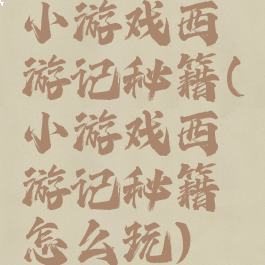 小游戏西
游记秘籍(
小游戏西
游记秘籍
怎么玩)